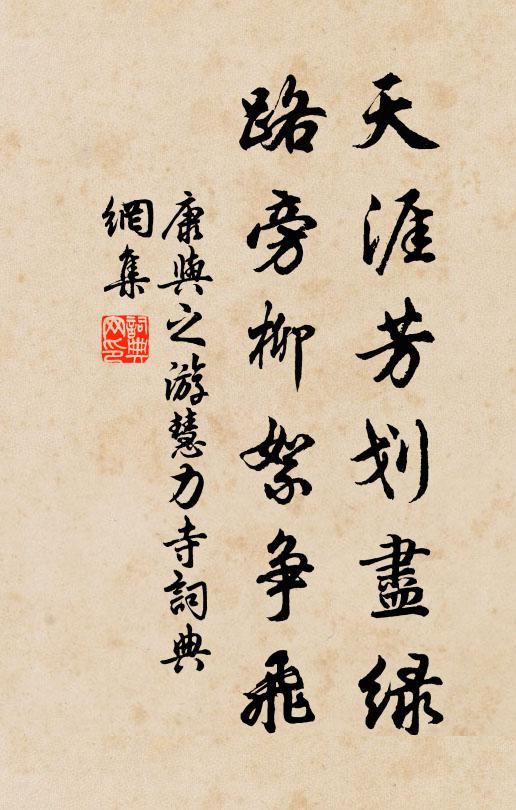 天涯芳划盡緑
路旁柳絮争飛
康與之游慧力寺詞典
網集
詞典
网印